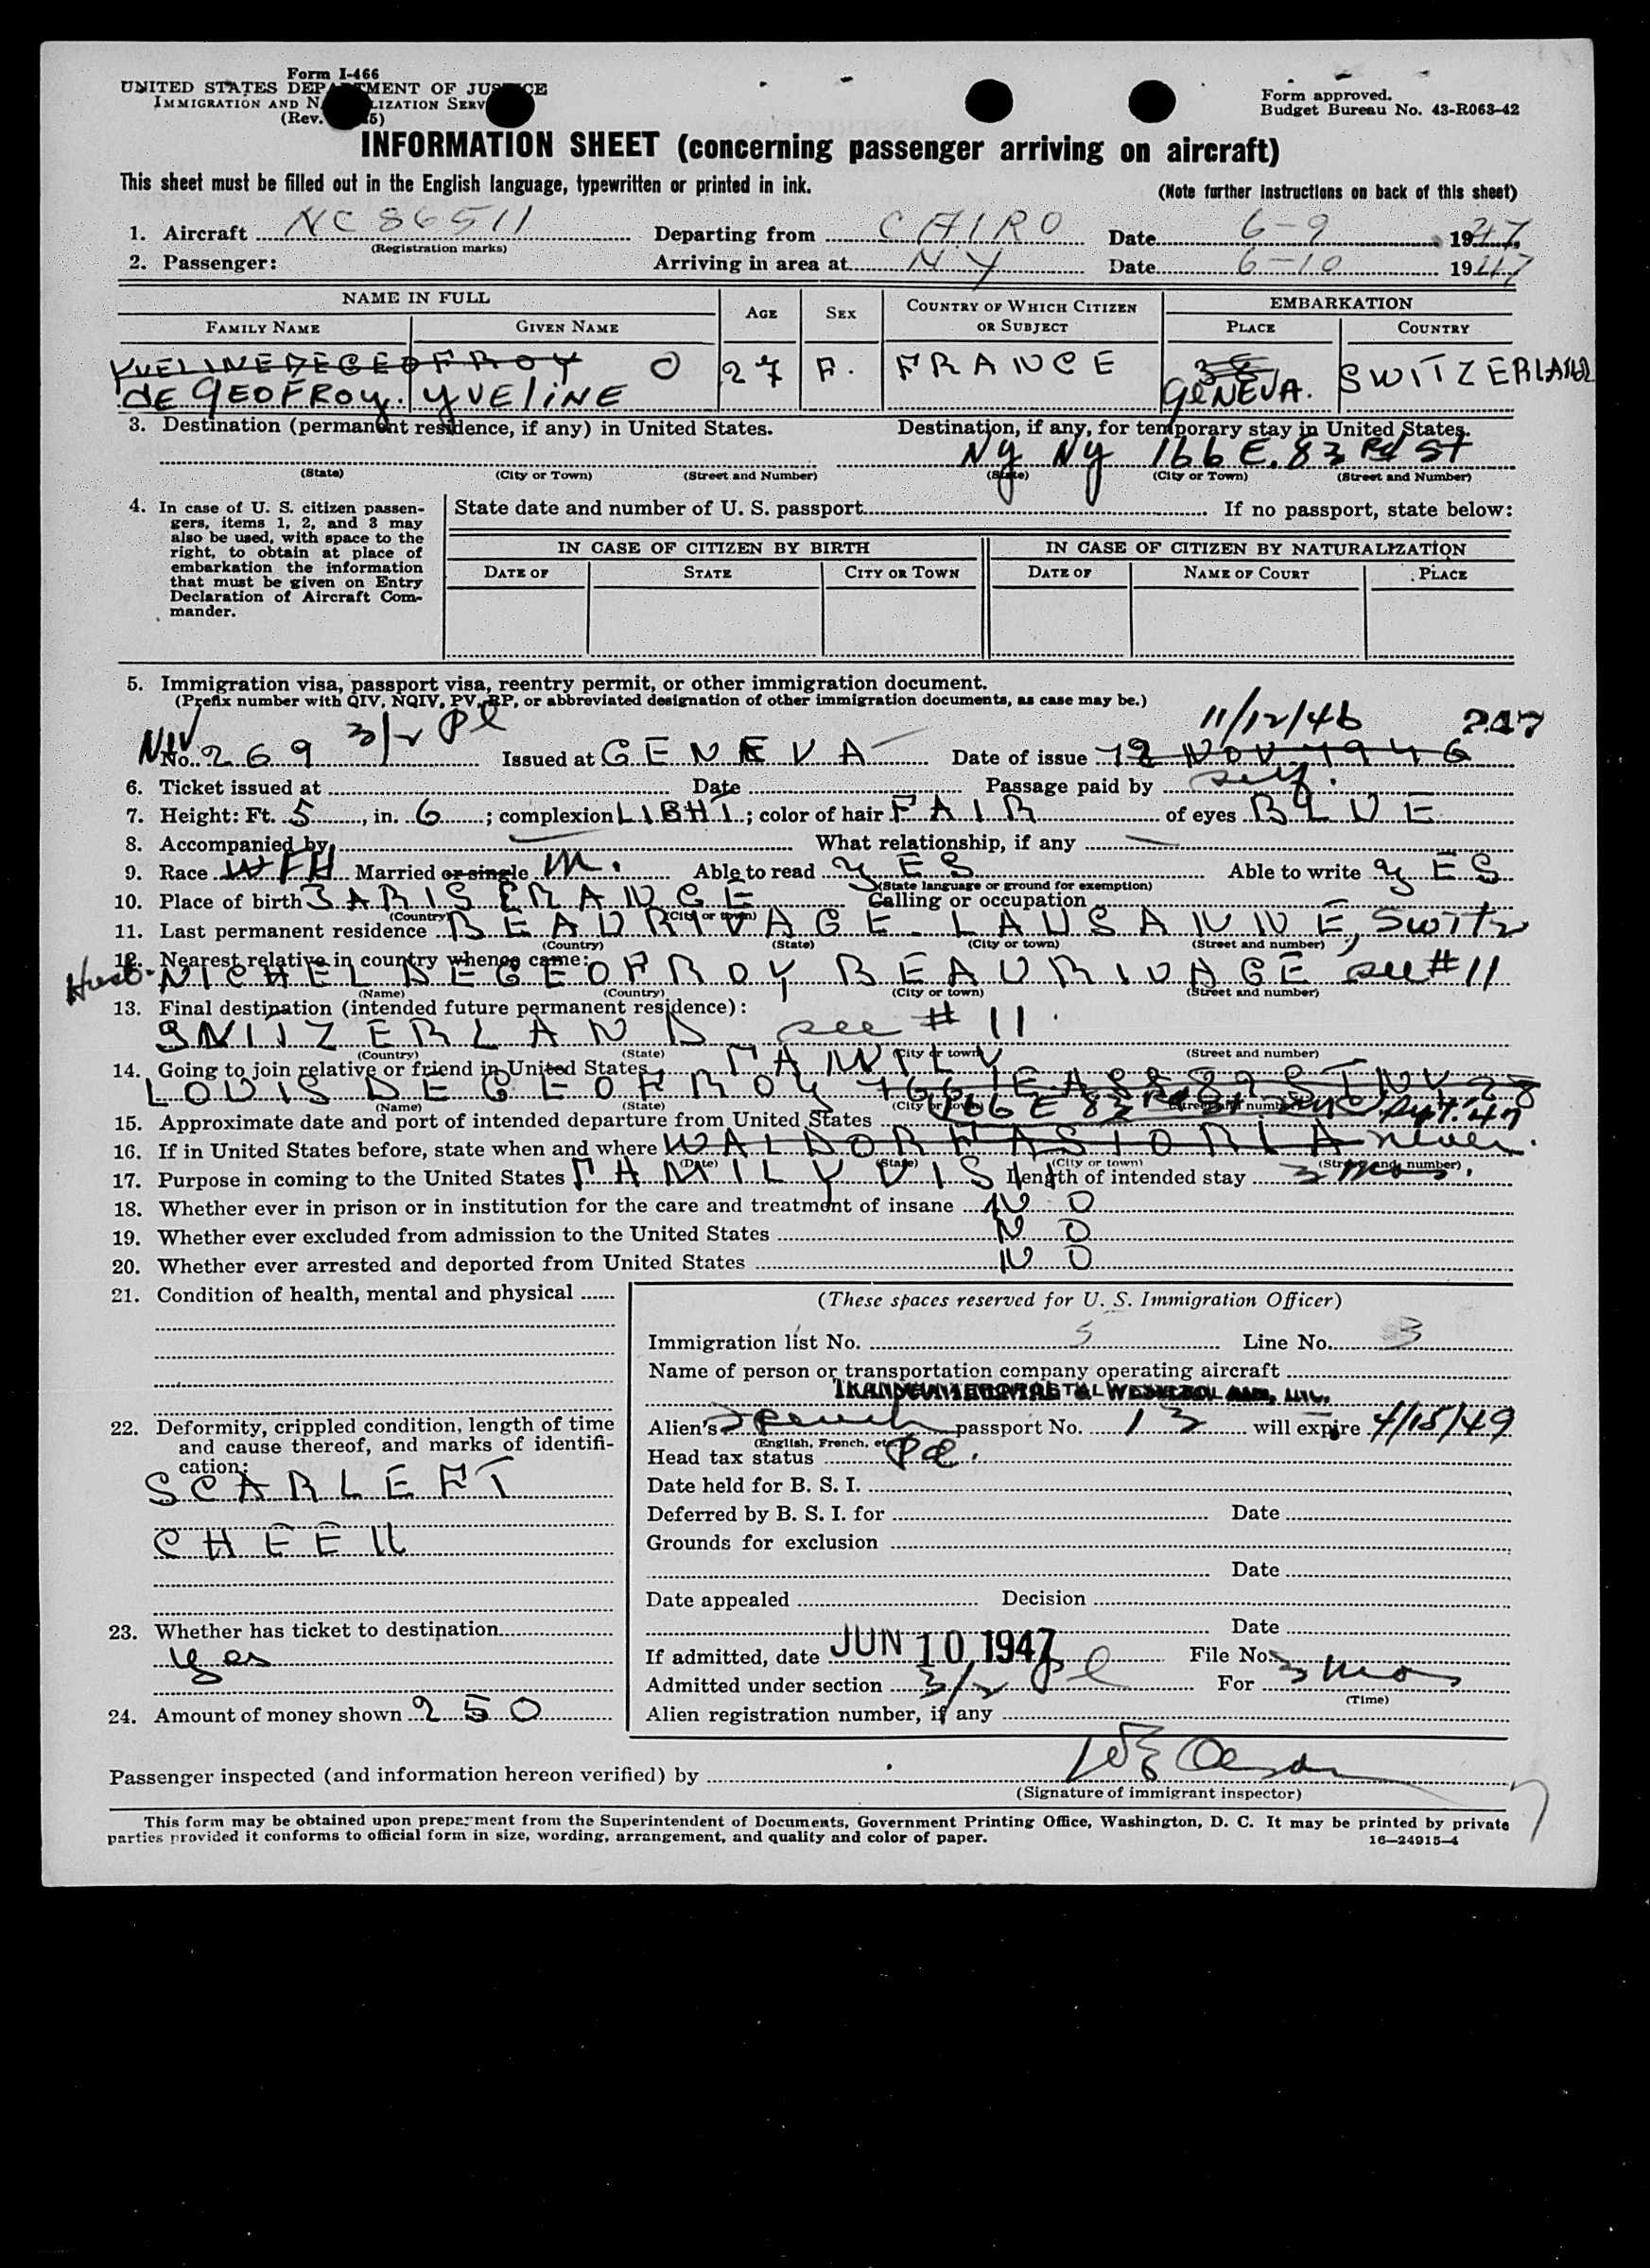 Form I-466
UNITED STATES DEPARTMENT OF JUSTICE
IMMIGRATION AND NATURALIZATION SERVICE
(Rev. 5)
Form approved.
Budget Bureau No. 43-R063-42
INFORMATION SHEET (concerning passenger arriving on aircraft)
This sheet must be filled out in the English language, typewritten or printed in ink. (Note further instructions on back of this sheet)
1. Aircraft NC 86511 Departing from CAIRO Date 6-9 1947
(Registration marks)
2. Passenger: Arriving in area at NY Date 6-10 1947
NAME IN FULL AGE SEX COUNTRY OF WHICH CITIZEN OR SUBJECT EMBARKATION
FAMILY NAME GIVEN NAME PLACE COUNTRY
YVELINE DEGEOFROY O 27 F. FRANCE SWITZERLAND
de GEOFROY. YVELINE GENEVA.
3. Destination (permanent residence, if any) in United States. Destination, if any, for temporary stay in United States.
NY NY 166 E. 83 Rd St
(State) (City or Town) (Street and Number) (State) (City or Town) (Street and Number)
4. In case of U. S. citizen passengers, items 1, 2, and 3 may also be used, with space to the right, to obtain at place of embarkation the information that must be given on Entry Declaration of Aircraft Commander.
State date and number of U. S. passport If no passport, state below:
IN CASE OF CITIZEN BY BIRTH IN CASE OF CITIZEN BY NATURALIZATION
DATE OF STATE CITY OR TOWN DATE OF NAME OF COURT PLACE
5. Immigration visa, passport visa, reentry permit, or other immigration document.
(Prefix number with QIV, NQIV, PV, RP, or abbreviated designation of other immigration documents, as case may be.)
3/2 Pl 11/12/46 247
NIV No. 269 Issued at GENEVA Date of issue 12 NOV 1946
6. Ticket issued at Date Passage paid by self.
7. Height: Ft. 5, in. 6; complexion LIGHT; color of hair FAIR of eyes BLUE
8. Accompanied by What relationship, if any
9. Race WFH Married or single M. Able to read YES Able to write YES
(State language or ground for exemption)
10. Place of birth PARIS FRANCE Calling or occupation
(Country) (City or town)
11. Last permanent residence BEAURIVAGE LAUSANNE, Switz
(Country) (State) (City or town) (Street and number)
12. Nearest relative in country whence came:
Husb. MICHEL DEGEOFROY BEAURIVAGE see #11
(Name) (Country) (City or town) (Street and number)
13. Final destination (intended future permanent residence):
SWITZERLAND see #11
(Country) (State) (City or town) (Street and number)
14. Going to join relative or friend in United States, FAMILY
LOUIS DE GEOFROY
(Name) (State) (City or town) (Street and number)
166 E 83 Rd St
15. Approximate date and port of intended departure from United States NYC Sept. '47
16. If in United States before, state when and where WALDORF ASTORIA never.
(Date) (State) (City or town) (Street and number)
17. Purpose in coming to the United States FAMILY VIS Length of intended stay 3 mos.
18. Whether ever in prison or in institution for the care and treatment of insane NO
19. Whether ever excluded from admission to the United States NO
20. Whether ever arrested and deported from United States NO
21. Condition of health, mental and physical
22. Deformity, crippled condition, length of time and cause thereof, and marks of identification:
SCAR LEFT
CHEEK
23. Whether has ticket to destination
yes
24. Amount of money shown 250
(These spaces reserved for U. S. Immigration Officer)
Immigration list No. 5 Line No. 3
Name of person or transportation company operating aircraft
Alien's French passport No. 13 will expire 4/15/49
(English, French, etc.)
Head tax status Pd.
Date held for B. S. I.
Deferred by B. S. I. for Date
Grounds for exclusion
Date
Date appealed Decision
Date
If admitted, date JUN 10 1947 File No.
Admitted under section 3/2 Pl For 3 mos
(Time)
Alien registration number, if any
Passenger inspected (and information hereon verified) by
(Signature of immigrant inspector)
This form may be obtained upon prepayment from the Superintendent of Documents, Government Printing Office, Washington, D. C. It may be printed by private
parties provided it conforms to official form in size, wording, arrangement, and quality and color of paper. 16—24915-4